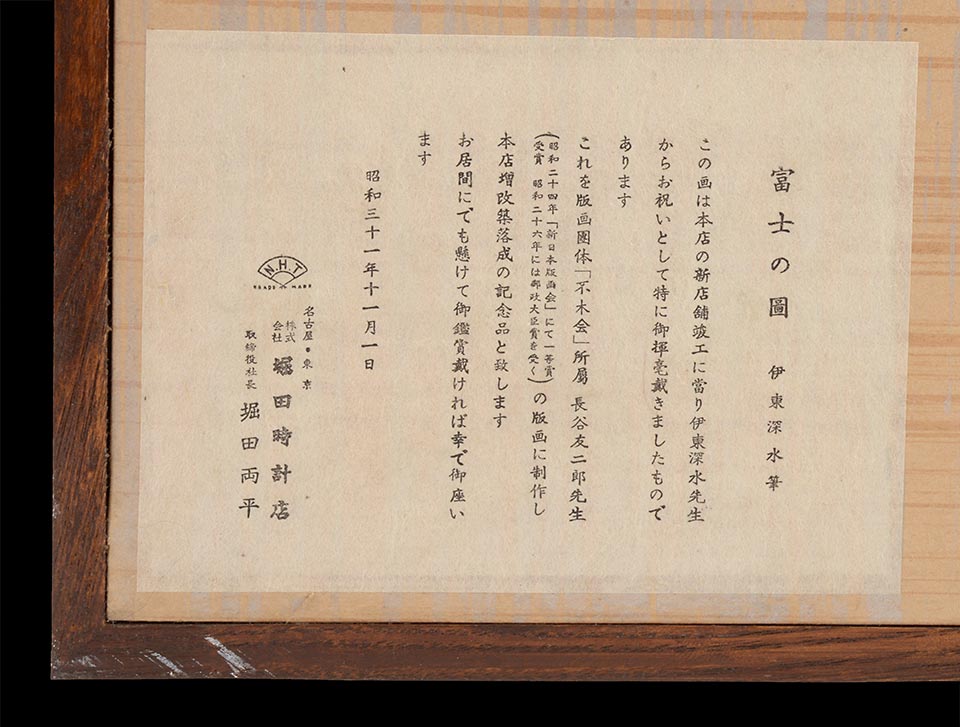 富士の圖　伊東深水筆
この画は本店の新店舗竣工に當り伊東深水先生
からお祝いとして特に御揮毫戴きましたもので
あります
これを版画團体「不木会」所属 長谷友二郎先生
(昭和二十四年「新日本版画会」にて一等賞
受賞 昭和二十六年には郵政大臣賞を受く)の版画に制作し
本店増改築落成の記念品と致します
お居間にでも懸けて御鑑賞戴ければ幸で御座い
ます
昭和三十一年十一月一日
N.H.T
TRADE MARK
名古屋・東京
株式会社 堀田時計店
取締役社長 堀田両平